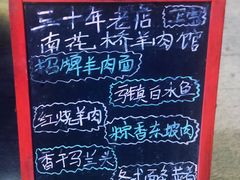 三十年老店
南花桥羊肉馆
招牌羊肉面
马镇白水鱼
红烧羊肉
粽香东坡肉
香干马兰头